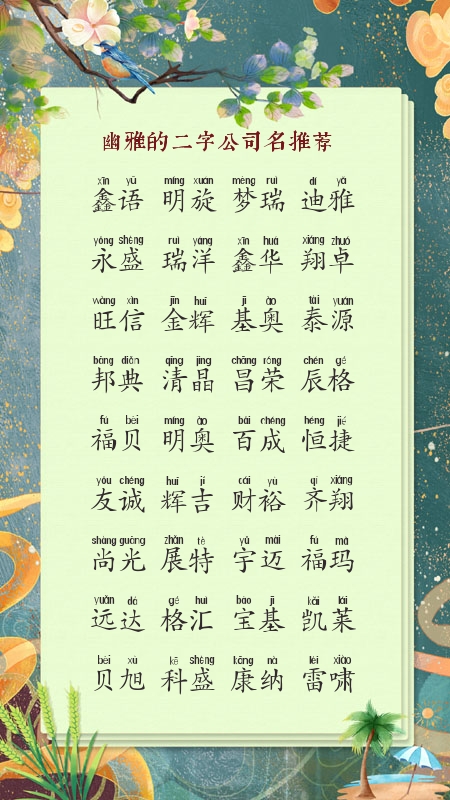 幽雅的二字公司名推荐
xīn yǔ míng xuán mèng ruì dí yǎ
鑫语 明旋 梦瑞 迪雅
yǒng shèng ruì yáng xīn huá xiáng zhuó
永盛 瑞洋 鑫华 翔卓
wàng xìn jīn huī jī ào tài yuán
旺信 金辉 基奥 泰源
bāng diǎn qīng jīng chāng róng chén gé
邦典 清晶 昌荣 辰格
fú bèi míng ào bǎi chéng héng jié
福贝 明奥 百成 恒捷
yǒu chéng huī jí cái yù qí xiáng
友诚 辉吉 财裕 齐翔
shàng guāng zhǎn tè yǔ mài fú mǎ
尚光 展特 宇迈 福玛
yuǎn dá gé huì bǎo jī kǎi lái
远达 格汇 宝基 凯莱
bèi xù kē shèng kāng nà léi xiào
贝旭 科盛 康纳 雷啸